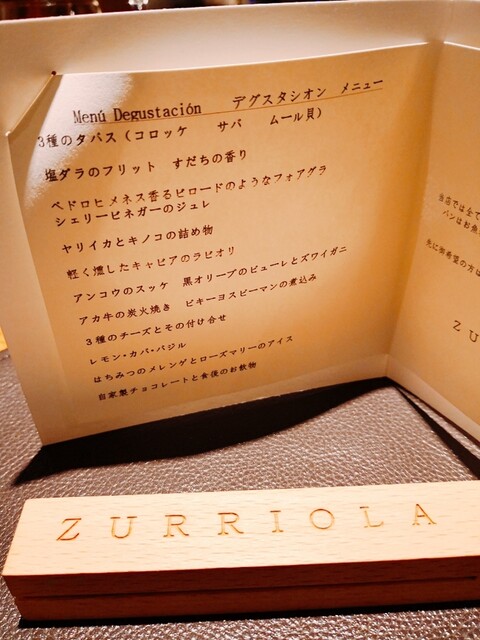 Menú Degustación デグスタシオン メニュー
3種のタパス(コロッケ サバ ムール貝)
塩ダラのフリット すだちの香り
ペドロヒメネス香るビロードのようなフォアグラ
シェリービネガーのジュレ
ヤリイカとキノコの詰め物
軽く燻したキャビアのラビオリ
アンコウのスッケ 黒オリーブのピューレとズワイガニ
アカ牛の炭火焼き ピキーヨスピーマンの煮込み
3種のチーズとその付け合せ
レモン・カバ・バジル
はちみつのメレンゲとローズマリーのアイス
自家製チョコレートと食後のお飲物
当店では全て
パンはお魚
先に御希望の方は
ZU
ZURRIOLA